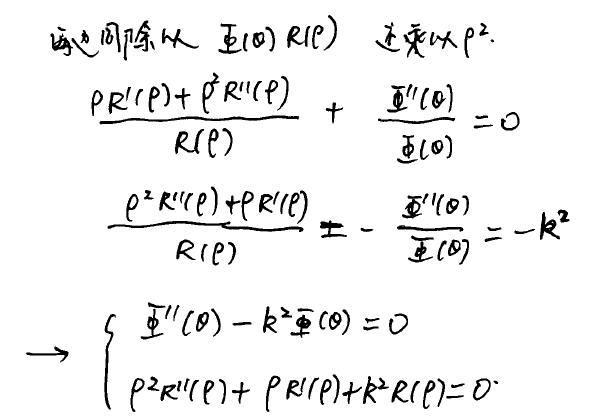 两边同除以 Φ(θ) R(ρ) 还乘以 ρ².
(ρR'(ρ) + ρ²R''(ρ))/R(ρ) + Φ''(θ)/Φ(θ) = 0
(ρ²R''(ρ) + ρR'(ρ))/R(ρ) = - Φ''(θ)/Φ(θ) = -k²
→ { Φ''(θ) - k²Φ(θ) = 0
ρ²R''(ρ) + ρR'(ρ) + k²R(ρ) = 0.